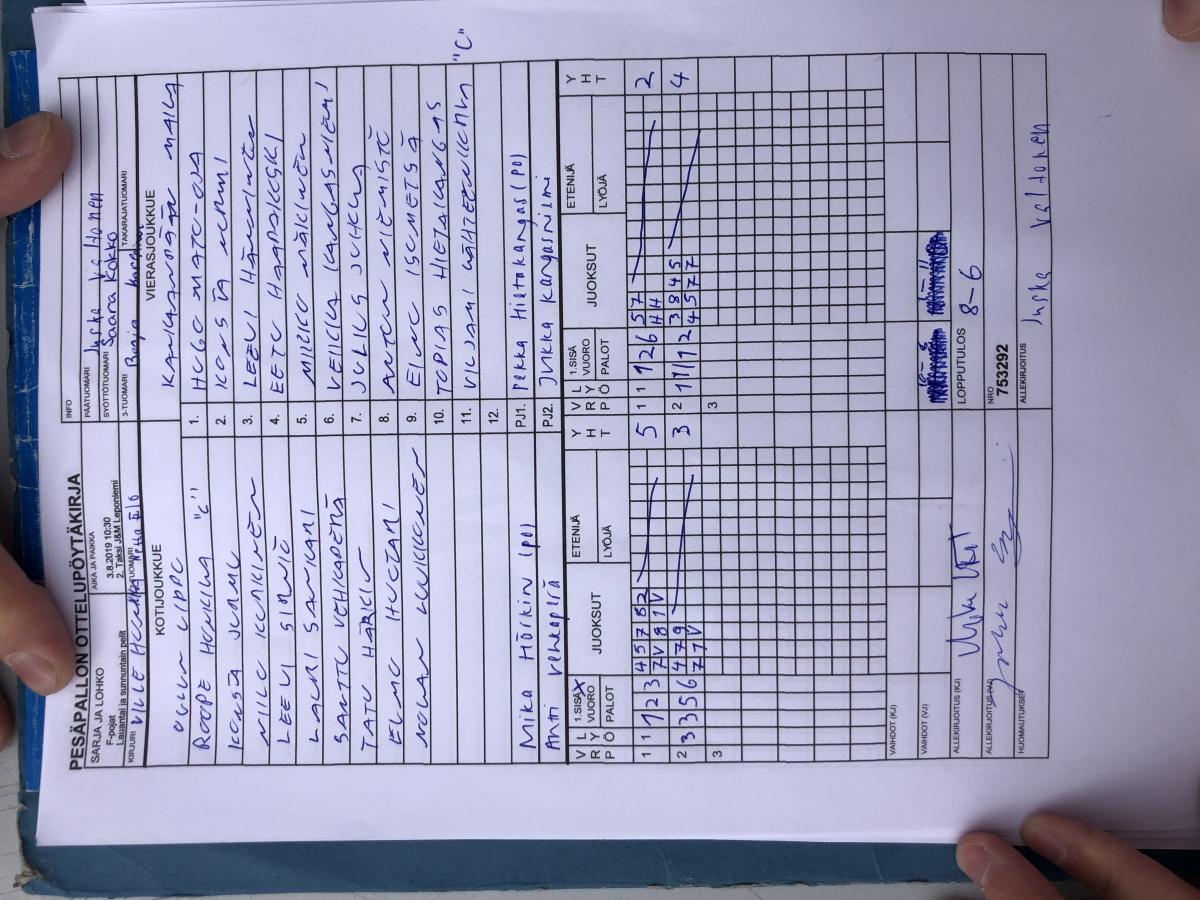 PESÄPALLON OTTELUPÖYTÄKIRJA
INFO
SARJA JA LOHKO
F-pojat
Lauantai ja sunnuntain pelit
AIKA JA PAIKKA
3.8.2019 10:30
2. Taksi J&M Leponiemi
PÄÄTUOMARI Juska Valtonen
SYÖTTÖTUOMARI Saara Kokko
KIRJURI VILLE
3-TUOMARI
TAKARAJATUOMARI
KOTIJOUKKUE
VIERASJOUKKUE
OULUN LIPPO
KANKAANPÄÄN MAILA
ROOPE HONKILA "C"
1. HUGO MATO-OJA
KUISA JUNMU
2.
MILO KUNKINEN
3. LEEVI HÄNNINEN
LEEVI SIRNIÖ
4. EETU HAAPAKOSKI
LAURI SANKARI
5. MIIKKU MÄKINEN
SANTTU VEHKAPERÄ
6. VEIKKA KANGASNIEMI
TATU HARKIN
7. JULIUS JUHLA
ELMO HUOTARI
8. ANTON NIEMISTÖ
NOLAN LUUKKONEN
9. EINO ISOMETSÄ
10. TOPIAS HIETAKANGAS
11. VILJAMI LÄHTEENKORVA "C"
12.
Mika Hörkin (PO)
PJ1. Pekka Hietakangas (PO)
Antti Vehkaperä
PJ2. Jukka Kangasniemi
V L R Y P Ö 1.SISÄ X VUORO PALOT JUOKSUT ETENIJÄ LYÖJÄ Y H T
V L R Y P Ö 1.SISÄ VUORO PALOT JUOKSUT ETENIJÄ LYÖJÄ Y H T
1 1 1 2 3 4 5 7 8 2 5
7 V 8 1 V
1 1 1 2 6 5 7 2
H H
2 3 3 5 6 4 7 9 3
7 1 V
2 1 1 1 1 2 3 8 4 5 4
4 5 7 7
3
3
VAIHDOT (KJ)
VAIHDOT (VJ)
ALLEKIRJOITUS (KJ)
LOPPUTULOS 8-6
ALLEKIRJOITUS (VJ)
NRO
753292
HUOMAUTUKSET
ALLEKIRJOITUS
Juska Valtonen